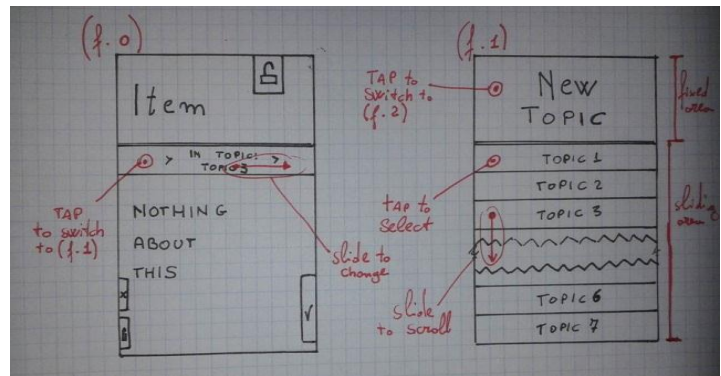 (f.0)
Item
> IN TOPIC: >
TOPIC 3
TAP
to switch
to (f.1)
NOTHING
ABOUT
THIS
slide to
change
x
(f.1)
TAP to
switch to
(f.2)
New
TOPIC
fixed
area
TOPIC 1
TOPIC 2
TOPIC 3
tap to
select
sliding
area
slide
to scroll
TOPIC 6
TOPIC 7